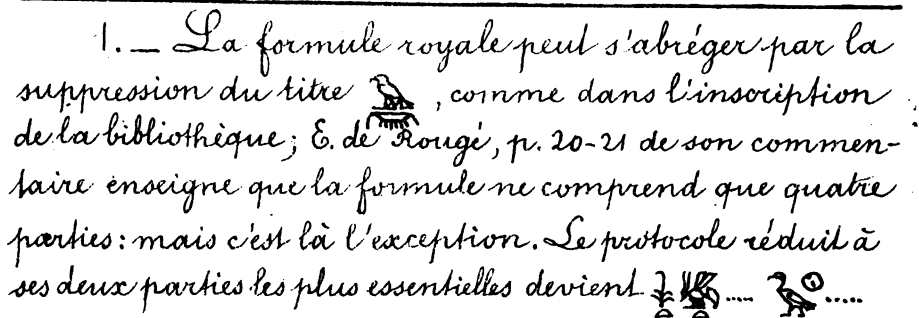 1. — La formule royale peut s'abréger par la
suppression du titre 𓅉, comme dans l'inscription
de la bibliothèque; E. de Rougé, p. 20-21 de son commen-
taire enseigne que la formule ne comprend que quatre
parties: mais c'est là l'exception. Le protocole réduit à
ses deux parties les plus essentielles devient 𓇓𓆤..... 𓅭𓇳.....